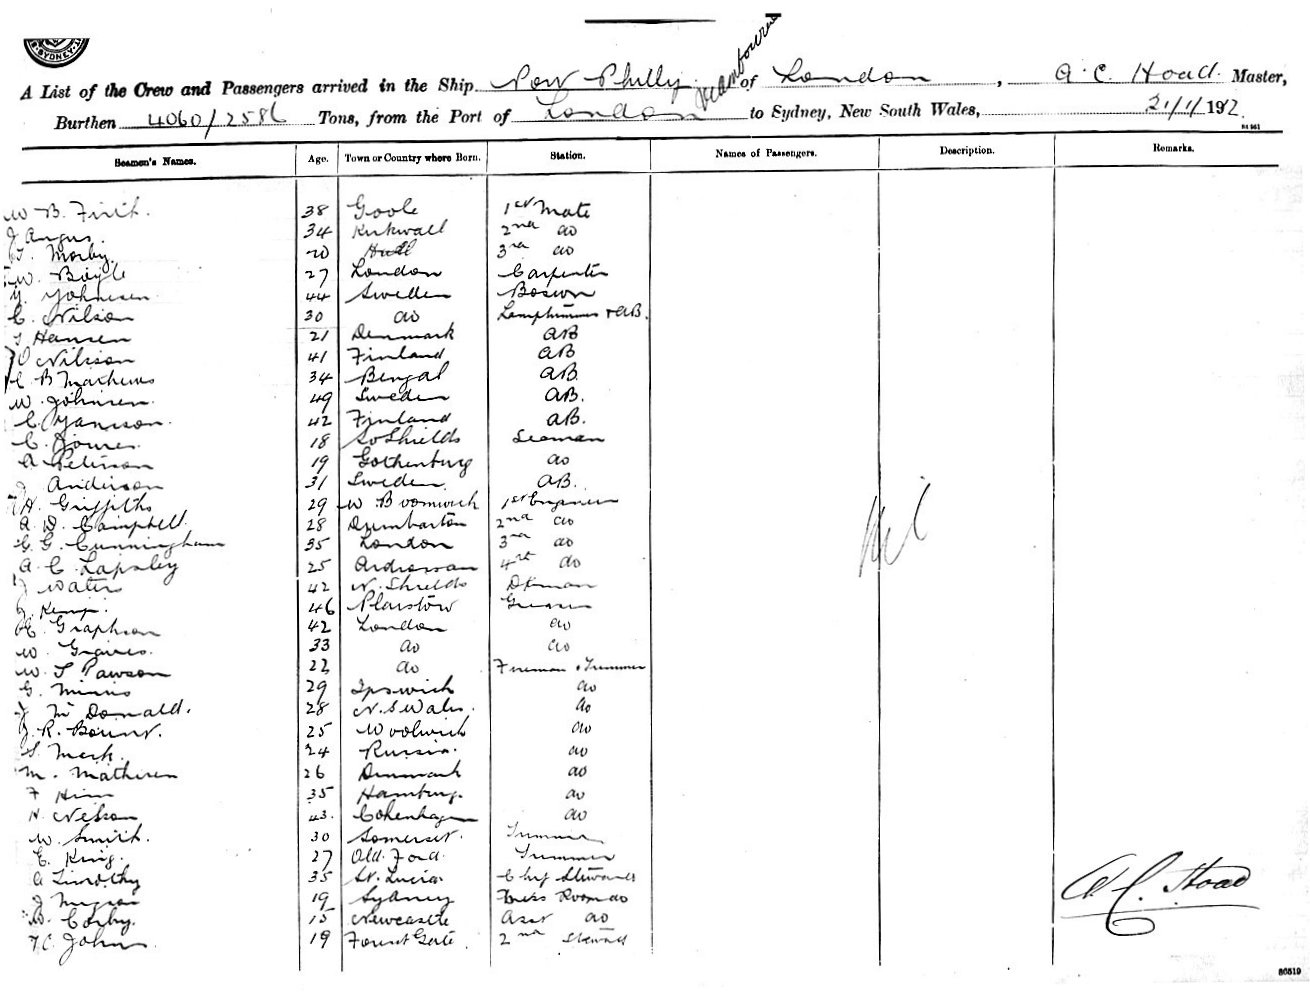 SYDNEY
A List of the Crew and Passengers arrived in the Ship Port Phillip of London, A. C. Hoad Master,
Burthen 4060/2586 Tons, from the Port of London to Sydney, New South Wales, 21/1/1912.
Seamen's Names. Age. Town or Country where Born. Station. Names of Passengers. Description. Remarks.
W B. Firth. 38 Goole 1st Mate
J Angus. 34 Kirkwall 2nd do
T. Morby. 20 Hull 3rd do
W. Boyle 27 London Carpenter
Johnsen 44 Sweden Boswn
C. Nilson 30 do Lamptrimmer & AB.
Hansen 21 Denmark AB
O Nilsson 41 Finland AB
C B Mathews 34 Bengal AB.
W. Johnsen. 49 Sweden AB.
C. Janson. 42 Finland AB.
C. 18 So Shields Seaman
A Peterson 19 Gothenburg do
J Anderson 31 Sweden. AB.
H. Griffiths 29 W Bromwich 1st Engineer
A. D. Campbell. 28 Dumbarton 2nd do
C. G. Cunningham 35 London 3rd do
A. C. Lapsley 25 Ardrossan 4th do
J Waters 42 N. Shields Dkman
J. Kemp. 46 Plaistow Greaser
Graphson 42 London do
W. Graves. 33 do do
W. S Pawson 22 do Fireman & Trimmer
G. Minns 29 Ipswich do
J McDonald. 28 N. S Wales. do
J. R. 25 Woolwich do
S. Merk. 24 Russia. do
M. Mathisen 26 Denmark do
F 35 Hamburg. do
N. Nelson 43. Cohenhagen do
W. Smith. 30 Somerset. Trimmer
E. King. 27 Old. Ford. Trimmer
A Timothy 35 St. Lucia Chief Steward
J 19 Sydney Mess Room do
W. Corby. 15 Newcastle Asst do
Johns 19 Forest Gate. 2nd Steward
Nil
A. C. Hoad
86519